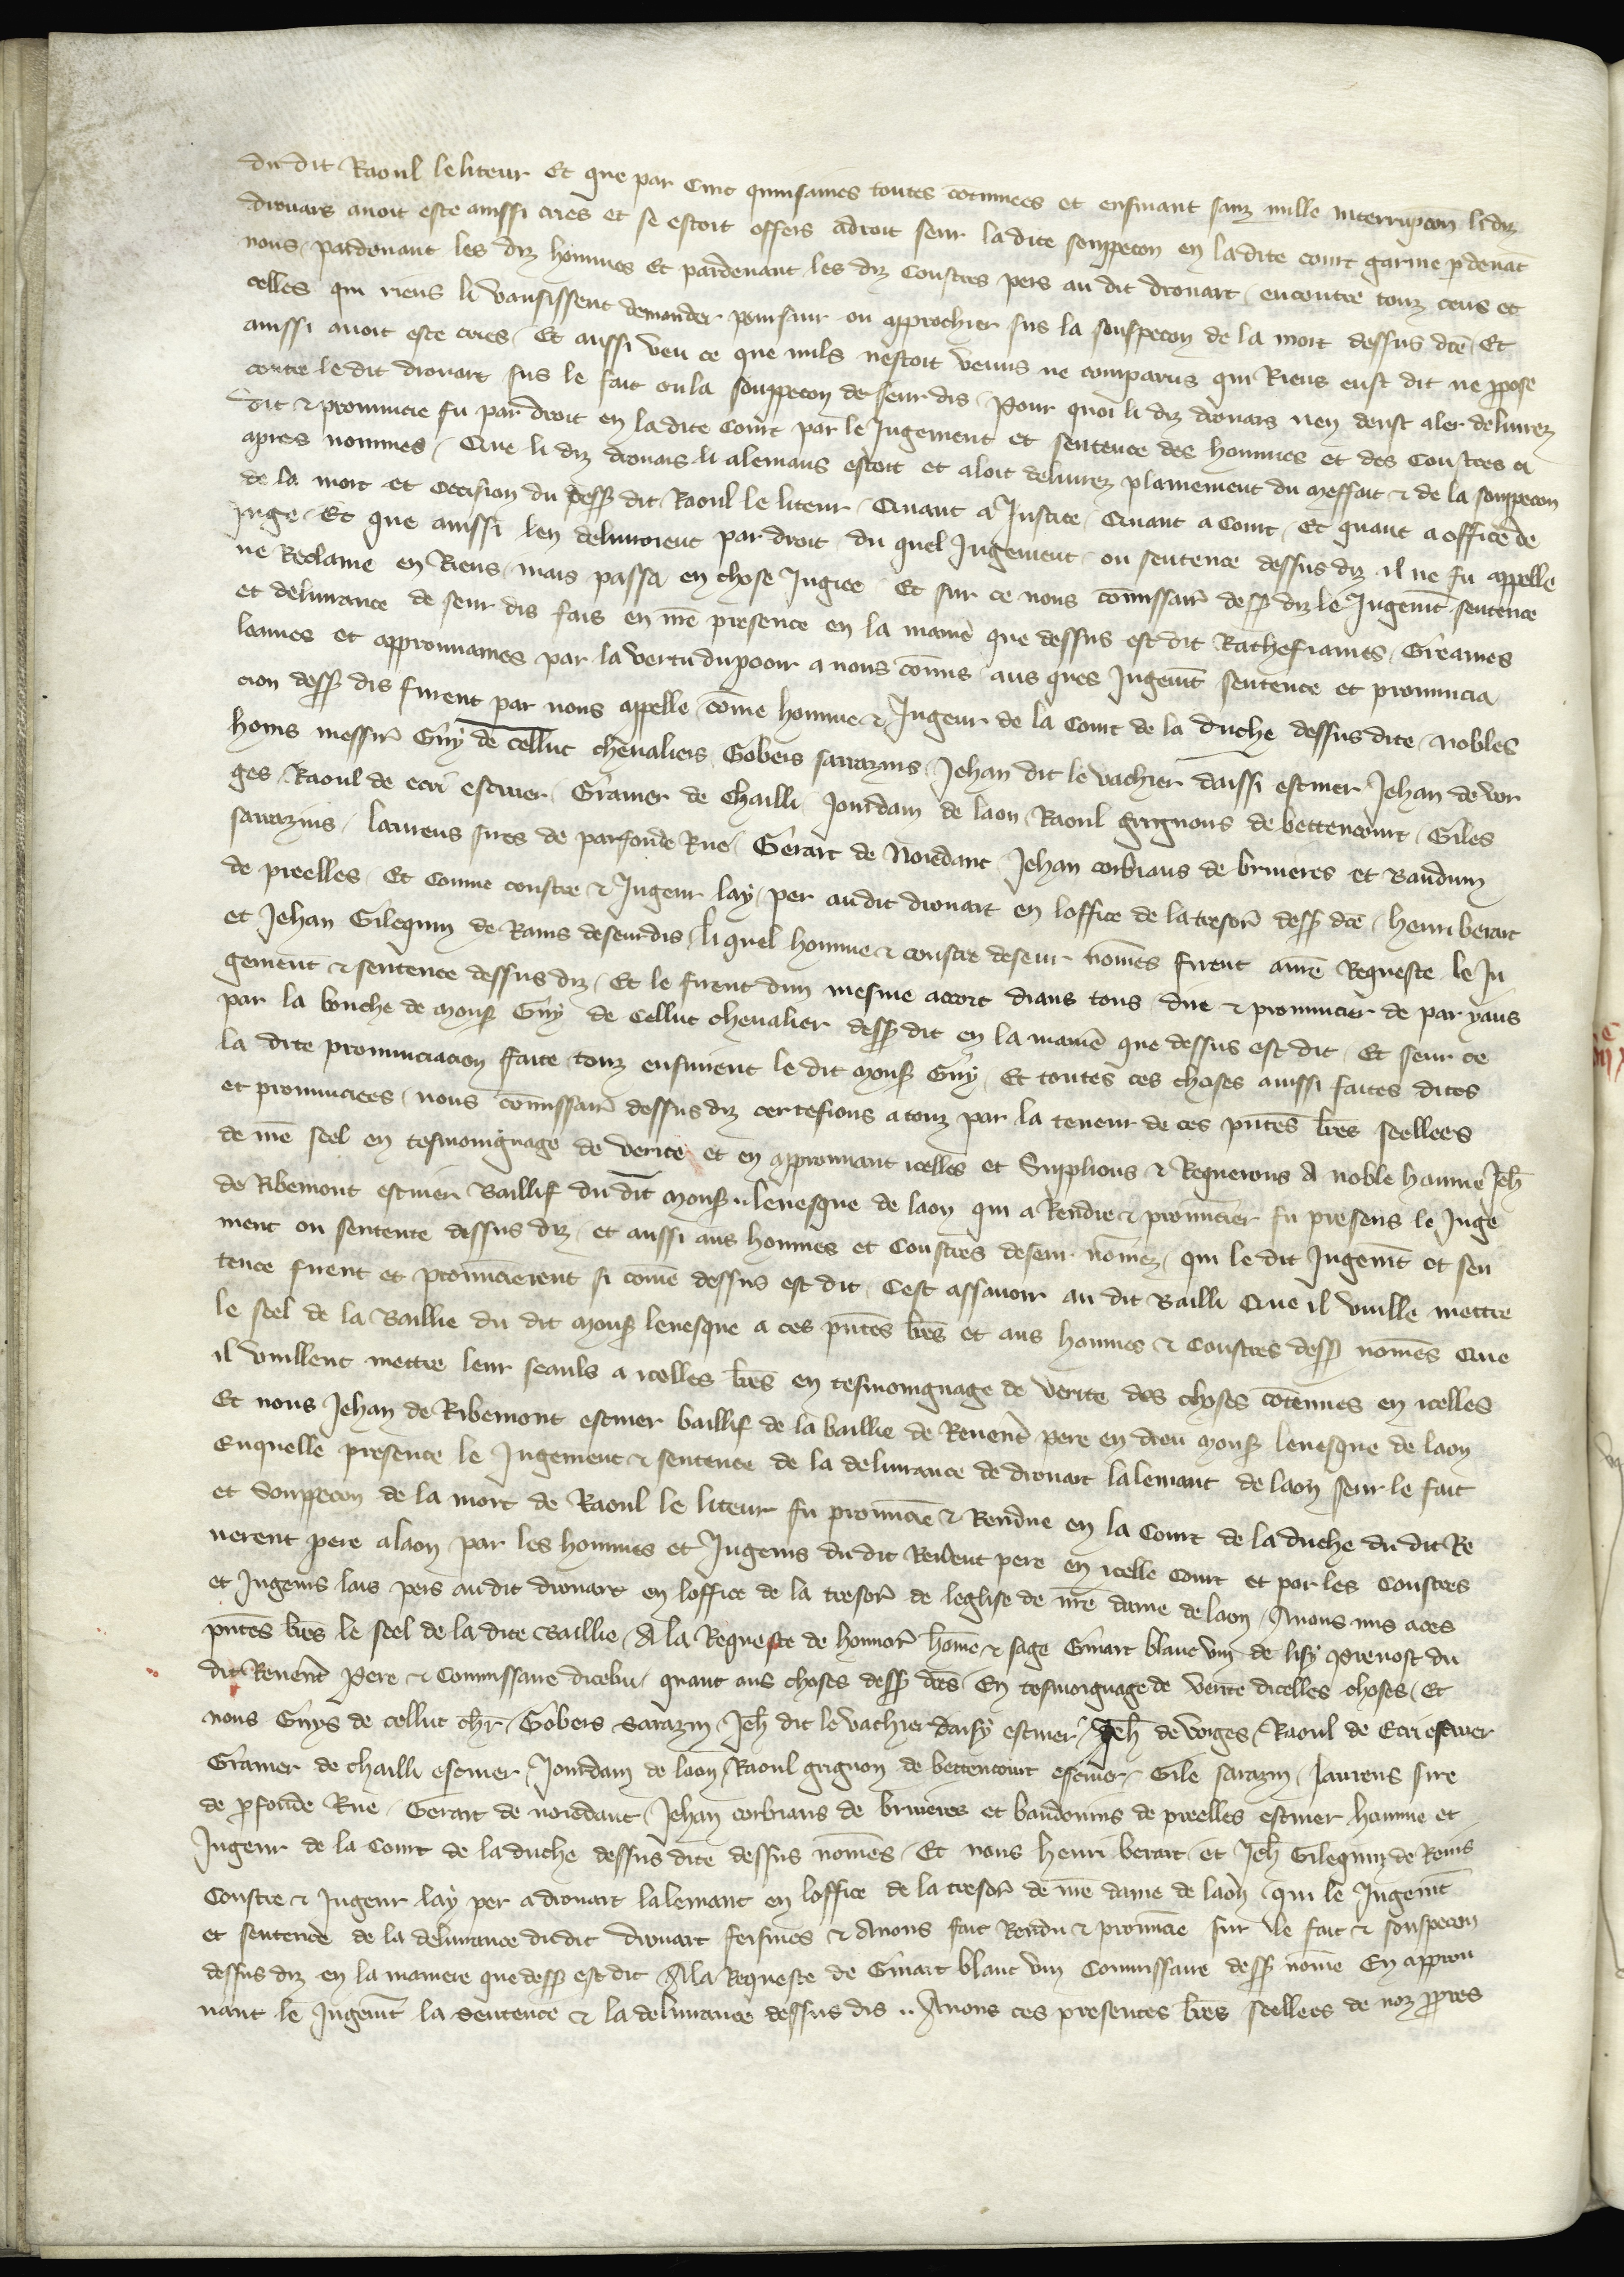 du dit Raoul le liteur Et que par Cinc quinsaines toutes cōtinuees et ensuiuant sanz nulle interrupcon li diz
drouars auoit este aussi cries et se estoit offers adroit seur ladite souppecon en ladite court garnie p̄deuāt
nous pardeuant les diz hommes Et pardeuant les diz Coustres pers au dit drouart encontre touz ceus et
celles qui riens li vausissent demander poursuir ou approchier sus la souspecon de la mort dessus dc̄e Et
aussi auoit este cries Et aussi veu ce que nuls nestoit venus ne comparus qui Riens eust dit ne ꝓpose
contre le dit drouart sus le fait ou la souppecon de seur dis Pour quoi li diz drouars nen deust aler deliurez
dit & pronuncie fu par droit en ladite Court par le Jugement et sentence des hommes et des Coustres ci
apres nommes Que li diz drouars li alemans estoit et aloit deliurez plainement du meffait & de la souppecon
de la mort et occision du dess᷒ dit Raoul le liteur Quant a Justice Quant a Court Et quant a office de
Juge Et que aussi len deliuroient par droit du quel Jugement ou sentence dessus diz il ne fu appelle
ne Reclame en Riens mais passa en chose Jugiee Et sur ce nous cōmissair̄ dess᷒ diz le Jugemt̄ sentence
et deliurance de seur dis fais en nr̄e presence en la manie᷒ que dessus est dit Rathefiames Greames
loames et approuuames par la vertu du pooir a nous cōmis aus ques Jugemt̄ sentence et pronuncia
cion dess᷒ dis furent par nous appelle cōme homme & Jugeur de la Court de la duche dessus dite Nobles
homs messir̄ Guy de celluc cheualiers Gobers sarrazins Jehan dit le vachier daissi escuier Jehan de vor
ges Raoul de ecri escuier Gramer de Chailli Jourdain de laon Raoul Grignons de bettencourt Giles
sarrazins laurens sires de parfonde Rue Gerart de Noiedant Jehan corbiaus de bruieres et Bauduin
de preelles Et Comme coustre & Jugeur lay per audit drouart en loffice de la tresor̄ dess᷒ dc̄e Henri berart
et Jehan Gilequin de Rains deseurdis li quel homme & coustre deseur nom̄es firent a nr̄e Requeste le Ju
gement & sentence dessus diz Et le firent dun mesme accort dians tous dire & pronuncier de par yaus
par la bouche de mons᷒ Guy de Celluc cheualier dess᷒ dit en la manie᷒ que dessus est dit Et seur ce
la dite pronunciacion faite touz ensuirent le dit mons᷒ Guy Et toutes ces choses aussi faites dites
et pronunciees nous cōmissair̄ dessus diz certefions a touz par la teneur de ces pn̄tes lr̄es seellees
de nr̄e seel en tesmoingnage de verite et en approuuant icelles et Supplions & Requerons A noble homme Jeh̄
de Ribemont escuier Baillif du dit mons᷒ leuesque de laon qui a Rendre & pronuncier fu presens le Juge
ment ou sentente dessus diz et aussi aus hommes et Coustres deseur nōmez qui le dit Jugemt̄ et sen
tence firent et pronuncierent si cōme dessus est dit Cest assauoir au dit Bailli Que il vuille mettre
le seel de la Baillie du dit mons᷒ leuesque a ces pn̄tes lr̄es et aus hommes & Coustres dess᷒ nom̄es Que
il vuillent mettre leur seauls a icelles lr̄es en tesmoingnage de verite des choses cōtenues en icelles
Et nous Jehan de Ribemont escuier baillif de la baillie de Reuerēt pere en dieu mons᷒ leuesque de laon
En quelle presence le Jugement & sentence de la deliurance de drouart lalemant de laon seur le fait
et souppecon de la mort de Raoul le liteur fu pronuncie & Rendue en la Court de la duche du dit Re
uerent pere a laon par les hommes et Jugeurs du dit Reuerent pere en icelle Court et par les Coustres
et Jugeurs lais pers au dit drouart en loffice de la tresor̄ de leglise de nr̄e dame de laon Auons mis a ces
pn̄tes lr̄es le seel de la dite Baillie A la Requeste de honnor̄ hōme & sage Girart blanc vin de lisy Preuost du
dit Reuerēt Pere & Commissaire dicelui quant aus choses dess᷒ dc̄es En tesmoignage de verite dicelles choses Et
nous Guys de celluc chr̄ Gobers Sarazin Jeh̄ dit le vachier daisy escuier Jeh̄ de vorges Raoul de Ecri escuier
Gramer de chailli escuier Jourdain de laon Raoul grignon de bettencourt escuier Gile sarazin laurens sire
de ꝑfonde Rue Gerart de noiedant Jehan corbiaus de bruieres et baudouins de preelles escuier homme et
Jugeur de la Court de la duche dessus dite dessus nom̄es Et nous henri berart et Jeh̄ Gilequin de Reins
Coustre & Jugeur lay per a drouart lalemant en loffice de la tresor̄ de nr̄e dame de laon qui le Jugemt̄
et sentence de la deliurance du dit drouart feismes & Auons fait Rendu & pronuncie sur le fait & souspecon
dessus diz en la maniere que dess᷒ est dit A la Requeste de Girart blanc vin Commissaire dess᷒ nōme En approu
uant le Jugemt̄ la Sentence & la deliurance dessus dis Auons ces presentes lr̄es seellees de noz ꝓpres